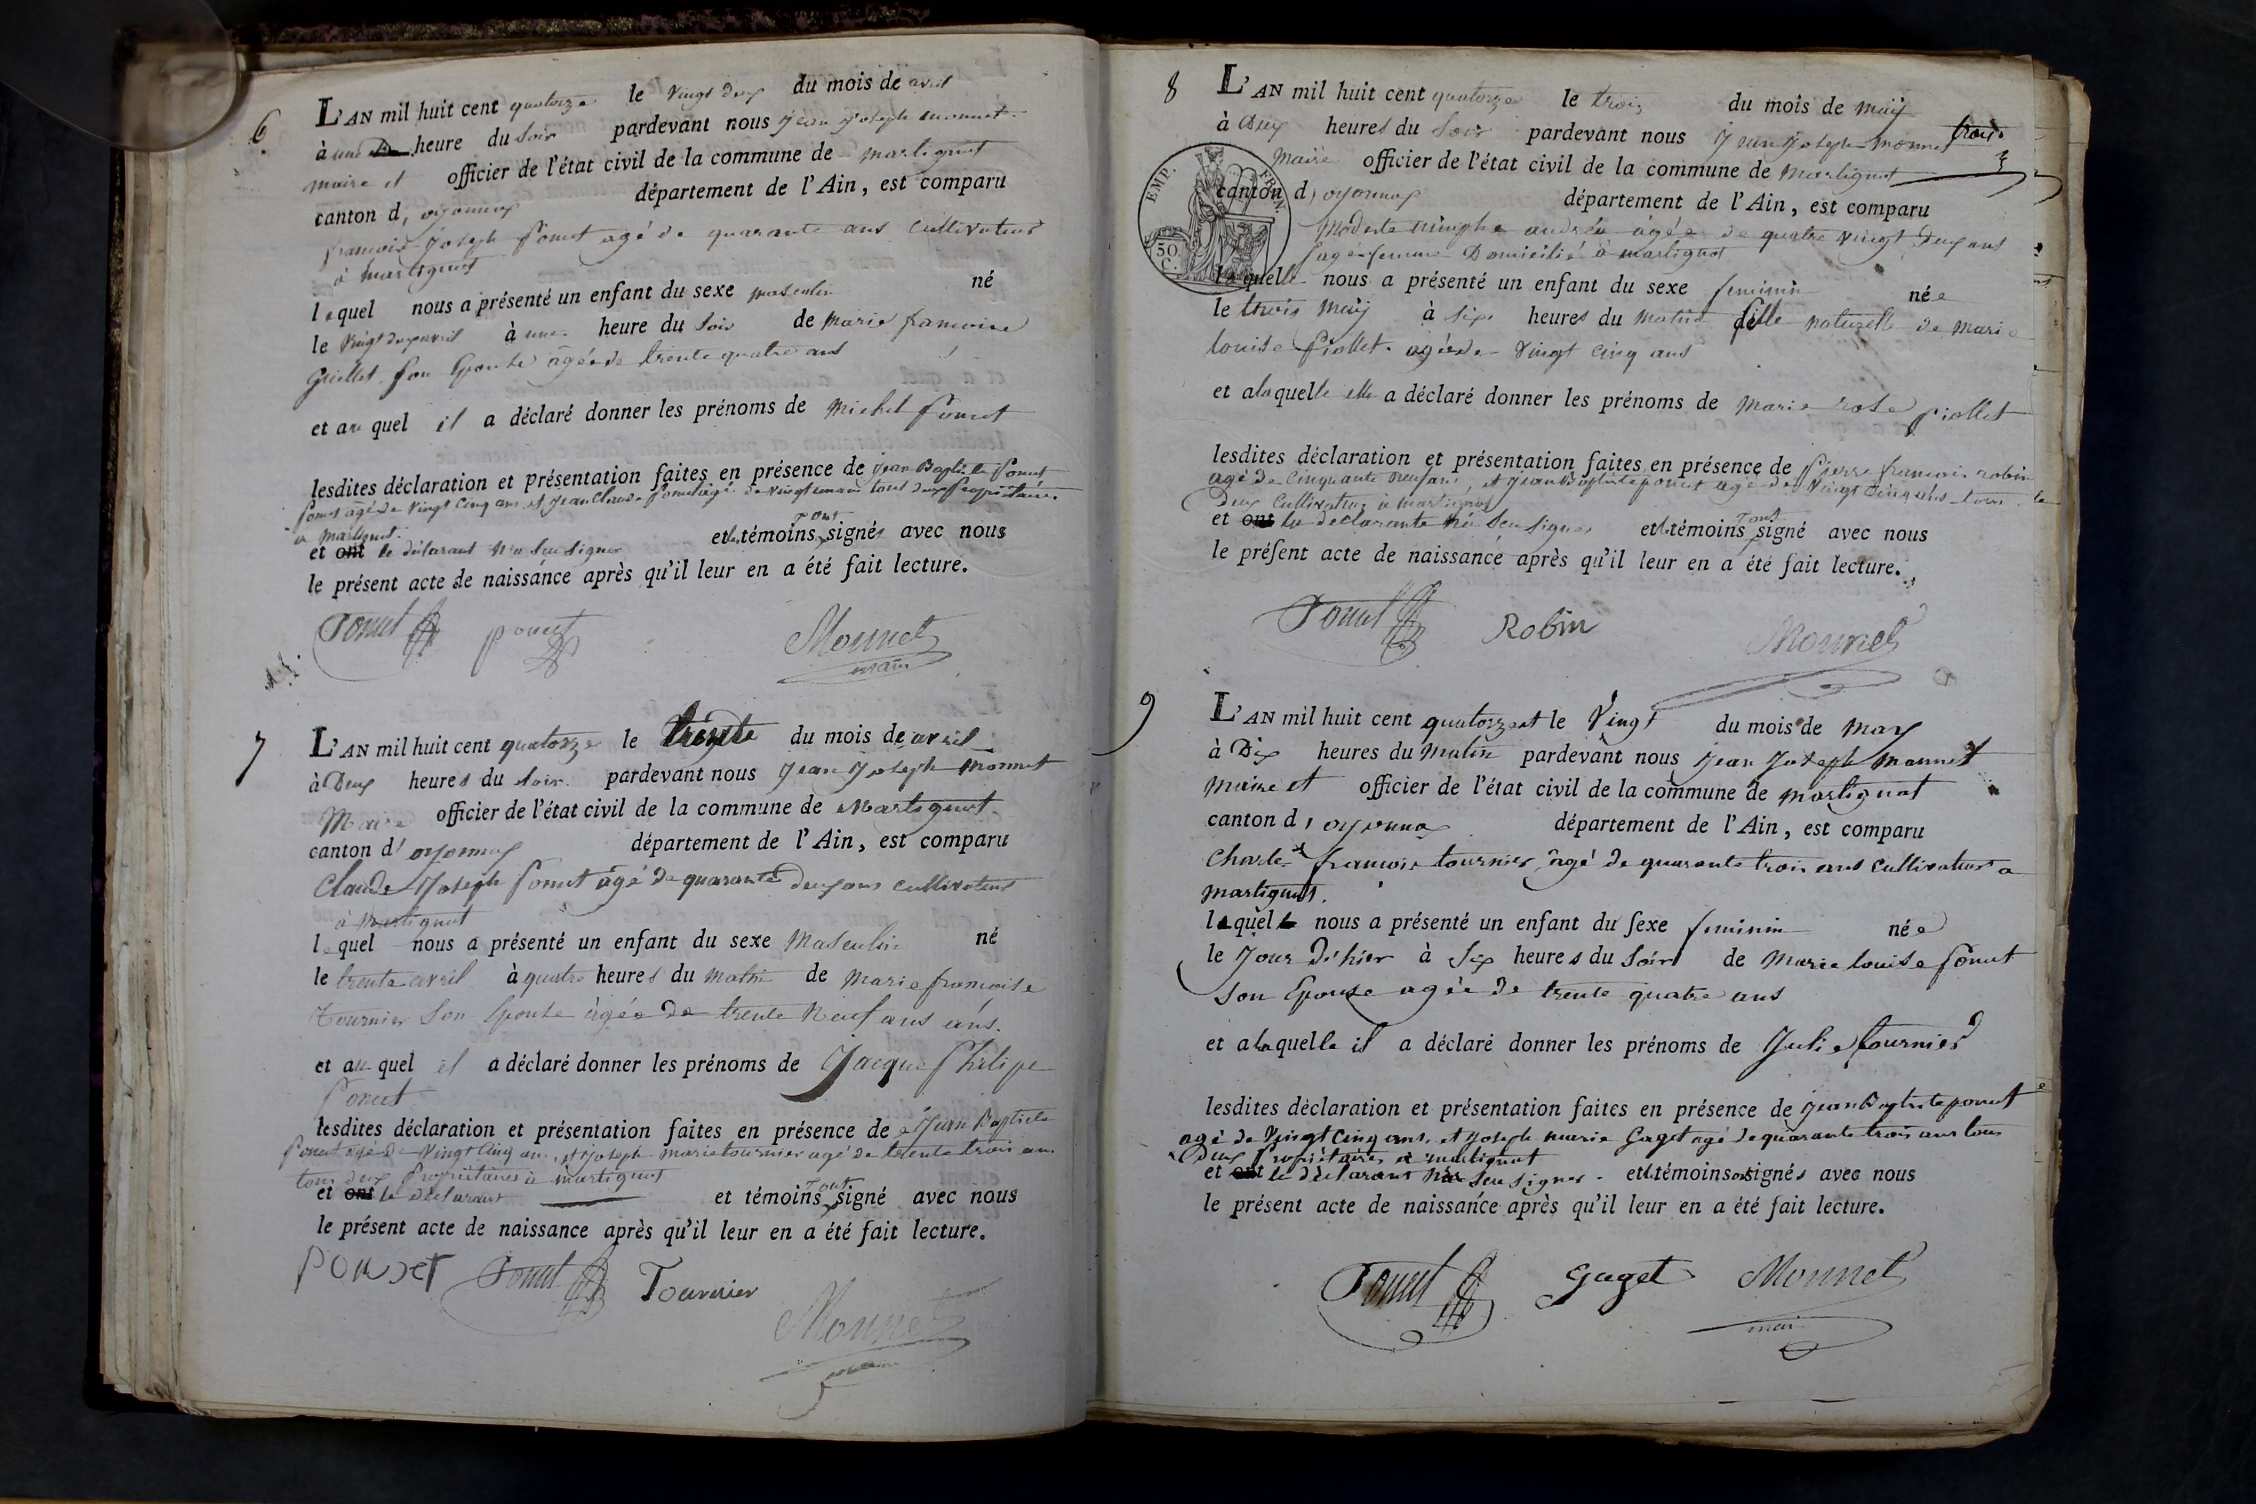 6
L'AN mil huit cent quatorze le vingt deux du mois de avril
à une heure du soir pardevant nous jean joseph monnet
maire et officier de l'état civil de la commune de martignat
canton d, oyonnax département de l'Ain, est comparu
françois joseph ponut agé de quarante ans cultivateur
à martignat
lequel nous a présenté un enfant du sexe masculin né
le vingt deux avril à une heure du soir de marie francoise
son epouse âgée de trente quatre ans
et au quel il a déclaré donner les prénoms de michel ponut
lesdites déclaration et présentation faites en présence de jean Baptiste ponut
agé de vingt cinq ans et jean claude ponut agé de vingt tous deux propriétaires
a martignat.
et ont le déclarant n'a seu signer et les témoins ont signés avec nous
le présent acte de naissance après qu'il leur en a été fait lecture.
Ponut ponut Monnet
maire
7
L'AN mil huit cent quatorze le trente du mois de avril
à Deux heures du soir pardevant nous jean joseph monnet
Maire officier de l'état civil de la commune de Martignat
canton d' oyonnax département de l'Ain, est comparu
Claude joseph ponut âgé de quarante deux ans cultivateur
à martignat
lequel nous a présenté un enfant du sexe Masculin né
le trente avril à quatre heures du matin de marie françoise
Tournier son epouse âgée de trente neuf ans ans.
et au quel il a déclaré donner les prénoms de jacque philipe
Ponut
lesdites déclaration et présentation faites en présence de jean Baptiste
ponut agé de vingt cinq ans, et joseph marie tournier agé de trente trois ans
tous deux propriétaires à martignat
et ont le déclarant et témoins ont signé avec nous
le présent acte de naissance après qu'il leur en a été fait lecture.
Ponut Tournier
Monnet
8
L'AN mil huit cent quatorze le trois du mois de maÿ
à deux heures du soir pardevant nous jean joseph monnet
maire officier de l'état civil de la commune de martignat
canton d, oyonnax département de l'Ain, est comparu
EMP. FRAN.
50 C.
modeste nimphe andréa âgée de quatre vingt deux ans
sage femme Domicilié à martignat
laquelle nous a présenté un enfant du sexe feminin née
le trois maÿ à six heures du matin fille naturelle de marie
louise piollet agée de vingt cinq ans
et alaquelle elle a déclaré donner les prénoms de marie rose piollet
lesdites déclaration et présentation faites en présence de pierre francois robin
agé de cinquante neuf ans, et jean Baptiste ponut agé de vingt cinq ans tous le
deux cultivateur à martignat
et ont la declarante n'a seu signer et les témoins ont signé avec nous
le présent acte de naissance après qu'il leur en a été fait lecture.
Ponut Robin Monnet
9
L'AN mil huit cent quatorze et le vingt du mois de may
à Dix heures du matin pardevant nous jean joseph monnet
maire et officier de l'état civil de la commune de martignat
canton d, oyonnax département de l'Ain, est comparu
Charle francois tournier, âgé de quarante trois ans cultivateur a
martignat.
lequel nous a présenté un enfant du sexe feminin née
le jour d'hier à six heures du soir de marie louise ponut
son Epouse agée de trente quatre ans
et alaquelle il a déclaré donner les prénoms de julie tournier
lesdites déclaration et présentation faites en présence de jean Baptiste ponut
agé de vingt cinq ans, et joseph marie Gaget agé de quarante trois ans tous
deux propriétaires a martignat
et ont le déclarant n'a seu signer - et les témoins ont signés avec nous
le présent acte de naissance après qu'il leur en a été fait lecture.
Ponut Gaget Monnet
maire